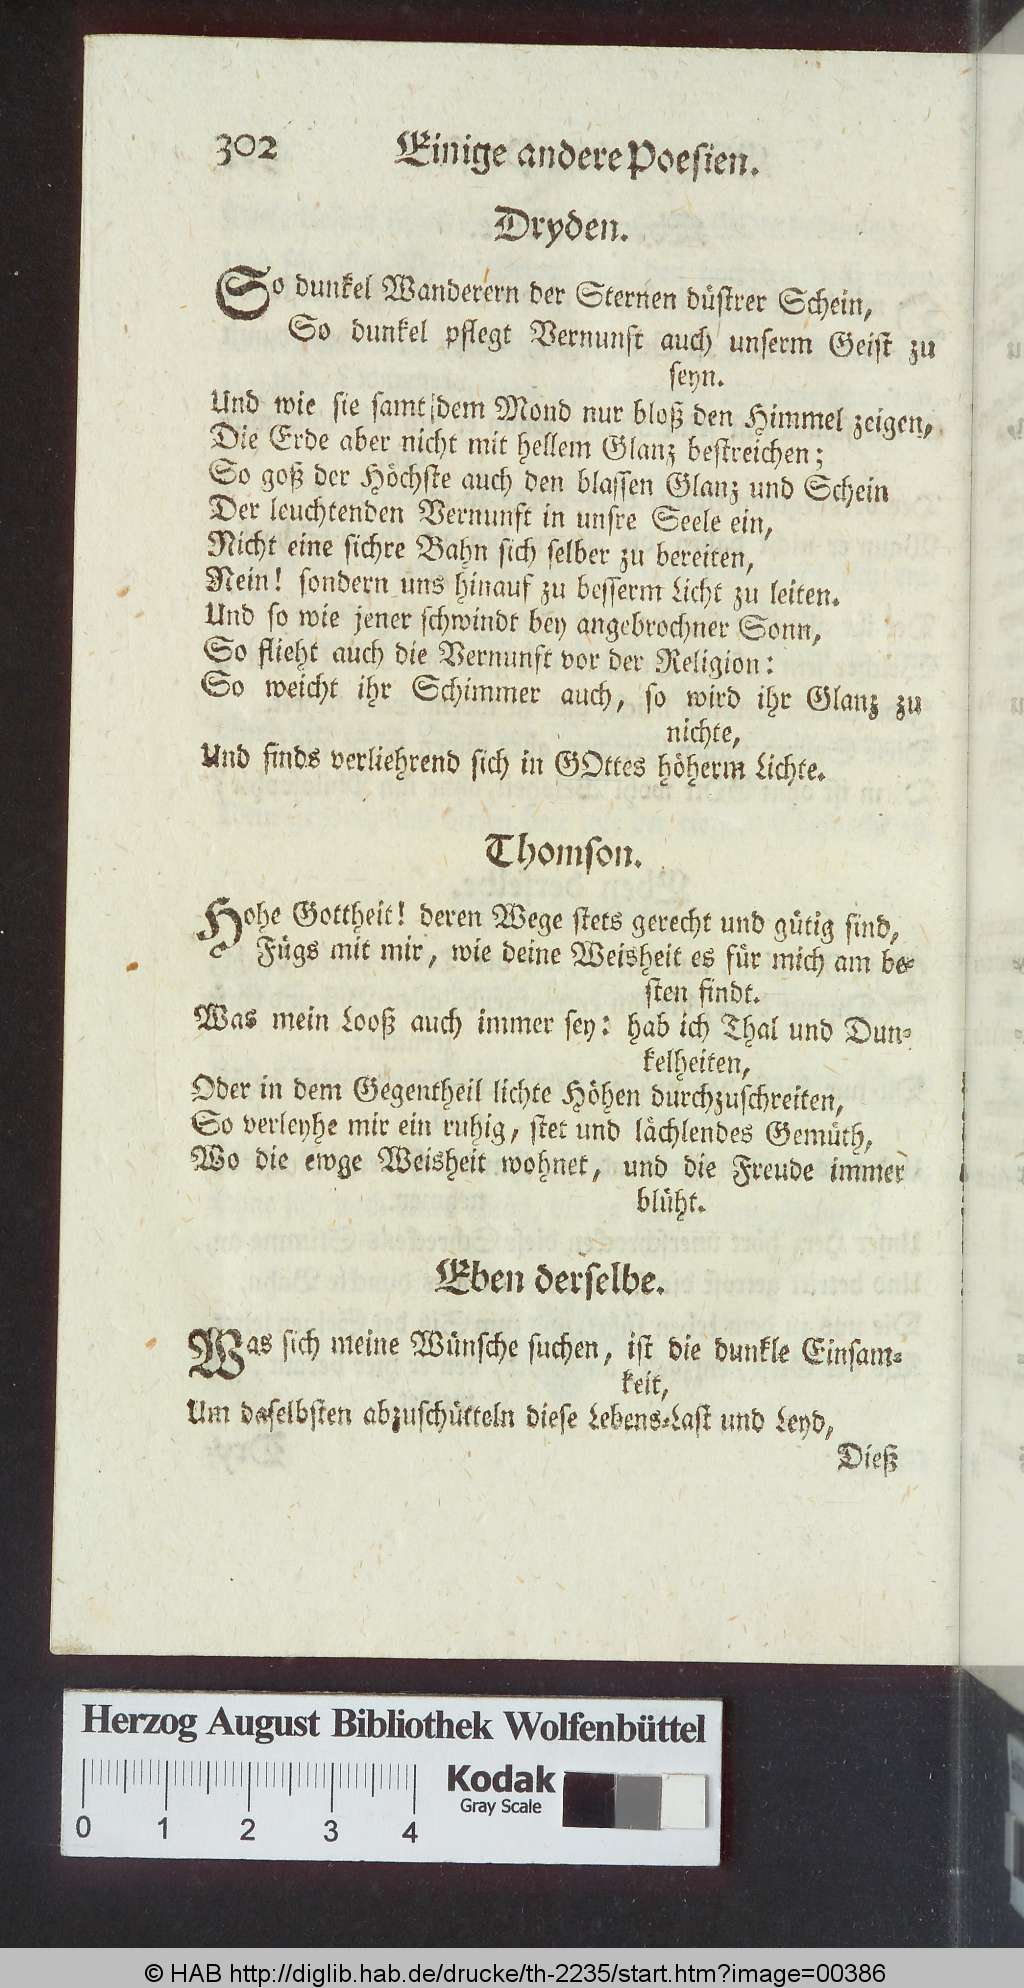 302 Einige andere Poesien.
Dryden.
So dunkel Wanderern der Sternen düstrer Schein,
So dunkel pflegt Vernunft auch unserm Geist zu
seyn.
Und wie sie samt dem Mond nur bloß den Himmel zeigen,
Die Erde aber nicht mit hellem Glanz bestreichen;
So goß der Höchste auch den blassen Glanz und Schein
Der leuchtenden Vernunft in unsre Seele ein,
Nicht eine sichre Bahn sich selber zu bereiten,
Nein! sondern uns hinauf zu besserm Licht zu leiten.
Und so wie jener schwindt bey angebrochner Sonn,
So flieht auch die Vernunft vor der Religion:
So weicht ihr Schimmer auch, so wird ihr Glanz zu
nichte,
Und finds verliehrend sich in GOttes höherm Lichte.
Thomson.
Hohe Gottheit! deren Wege stets gerecht und gütig sind,
Fügs mit mir, wie deine Weisheit es für mich am be-
sten findt.
Was mein Looß auch immer sey: hab ich Thal und Dun-
kelheiten,
Oder in dem Gegentheil lichte Höhen durchzuschreiten,
So verleyhe mir ein ruhig, stet und lächlendes Gemüth,
Wo die ewge Weisheit wohnet, und die Freude immer
blüht.
Eben derselbe.
Was sich meine Wünsche suchen, ist die dunkle Einsam-
keit,
Um daselbsten abzuschütteln diese Lebens-Last und Leyd,
Dieß
Herzog August Bibliothek Wolfenbüttel
Kodak
Gray Scale
0 1 2 3 4
© HAB http://diglib.hab.de/drucke/th-2235/start.htm?image=00386